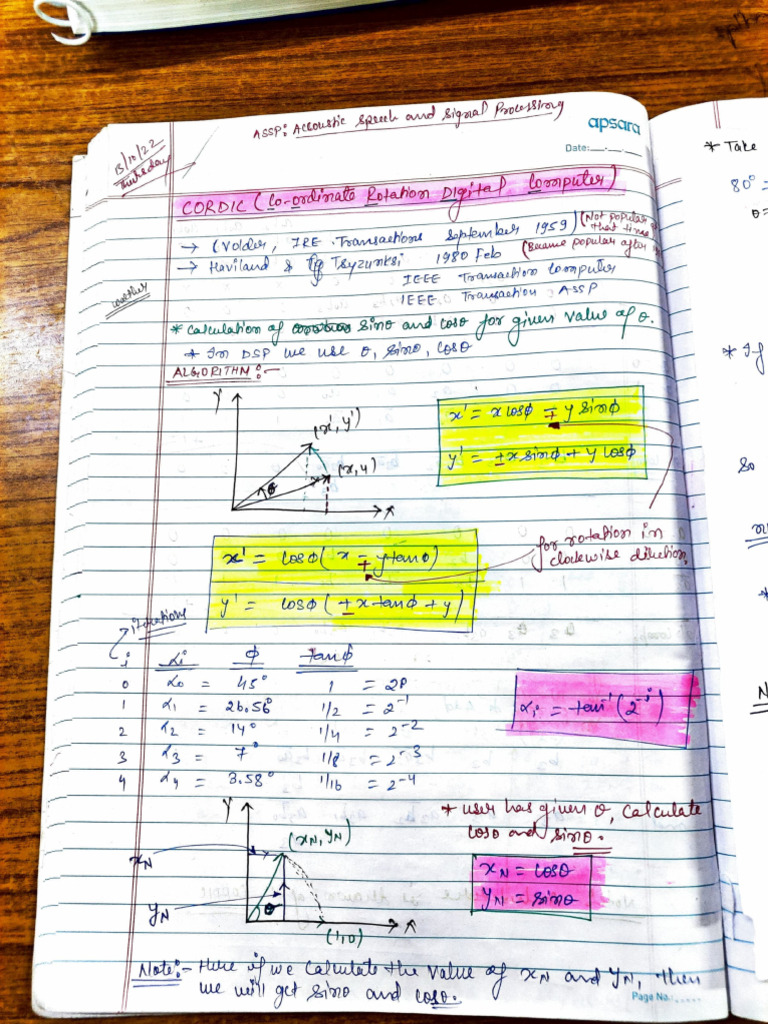 ASSP: Accoustic Speech and Signal Processing
apsara
Date:
13/10/22
Thursday
CORDIC (Co-ordinate Rotation Digital Computer)
→ (Volder, IRE Transactions September 1959) (Not popular
that time
→ Haviland & Tsyzunksi 1980 Feb (Became popular after
IEEE Transaction Computer
IEEE Transaction ASSP
* Calculation of sinθ and cosθ for given value of θ.
* In DSP we use θ, sinθ, cosθ
ALGORITHM:-
Y
(x', y')
(x, y)
θ
X
x' = x cosϕ ∓ y sinϕ
y' = ± x sinϕ + y cosϕ
for rotation in
clockwise direction
x' = cosϕ ( x ∓ y tanϕ)
y' = cosϕ ( ± x tanϕ + y)
iterations
i αi ϕ tanϕ
0 α0 = 45° 1 = 2º
1 α1 = 26.56° 1/2 = 2⁻¹
2 α2 = 14° 1/4 = 2⁻²
3 α3 = 7° 1/8 = 2⁻³
4 α4 = 3.58° 1/16 = 2⁻⁴
αi = tan⁻¹ (2⁻ⁱ)
* user has given θ, calculate
cosθ and sinθ.
Y
(xN, yN)
xN
yN
θ
(1,0)
X
xN = cosθ
yN = sinθ
Note:- Here if we calculate the value of xN and yN, then
we will get sinθ and cosθ.
Page No.:
* Take
80° =
θ =
* If
So
N